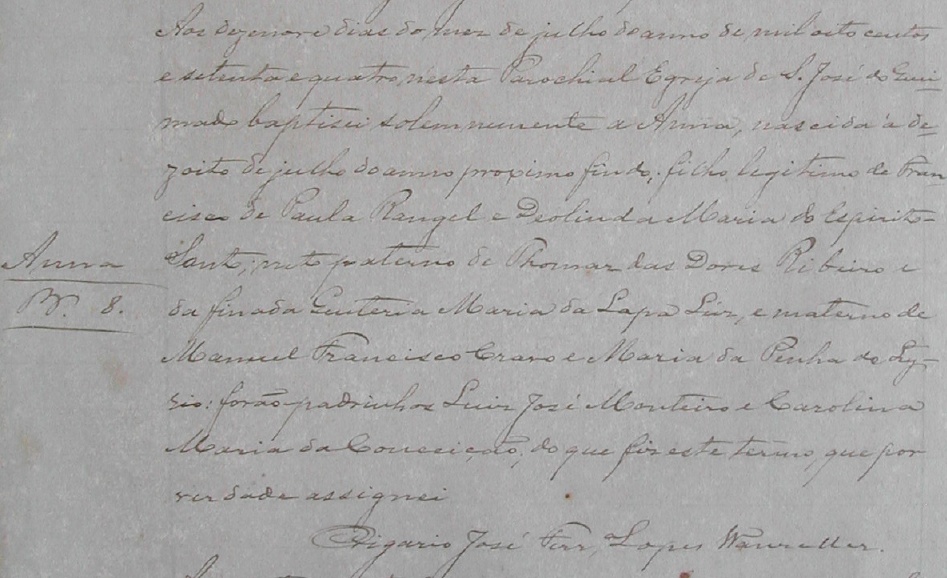 Aos dezenove dias do mez de julho do anno de mil oito centos
e setenta e quatro, nesta Parochial Egreja de S. José do Quei
mado baptisei solemnemente a Anna, nascida a de
zoito de julho do anno proximo findo; filho legitimo de Fran
cisco de Paula Rangel e Deolinda Maria do Espirito
Anna
Santo; neto paterno de Thomaz das Dores Ribeiro e
Nº. 8.
da finada Quiteria Maria da Lapa Luz, e materno de
Manuel Francisco Cravo e Maria da Penha do
forão padrinhos Luiz José Monteiro e Carolina
Maria da Conceição; do que fiz este termo, que por
verdade assignei
Vigario José Ferrª Lopes